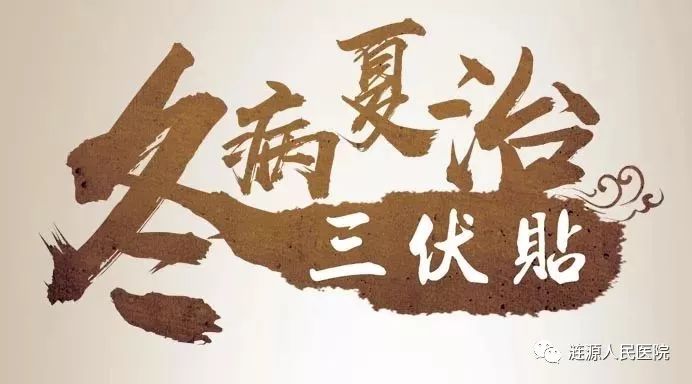 冬病夏治
三伏貼
涟源人民医院